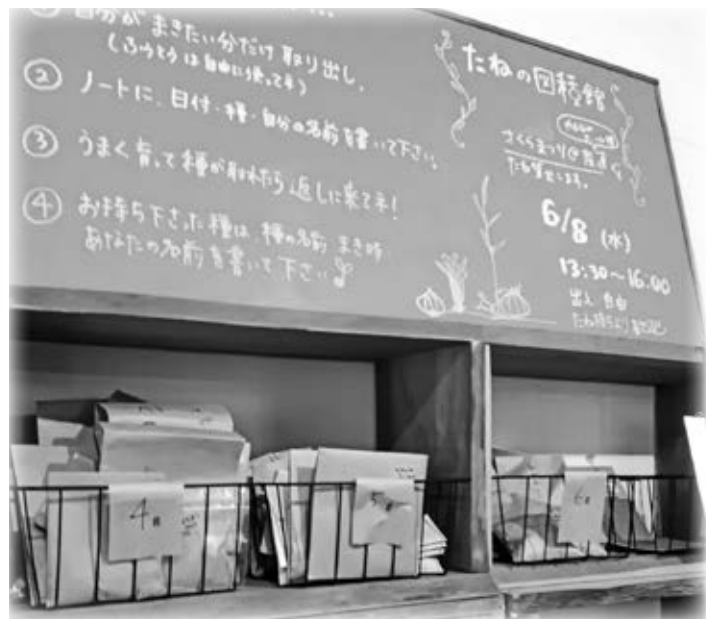 自分が まきたい分だけ 取り出し、
(ふうとう は自由に使って下さい)
② ノートに、日付・種・自分の名前を書いて下さい。
③ うまく育って種が取れたら返しに来てネ!
④ お持ち下さった種は、種の名前、まき時
あなたの名前を書いて下さい
たねの図種館
さくらまつり@
6/8 (水)
13:30~16:00
出入 自由
たね持ちより
4月
5月
6月